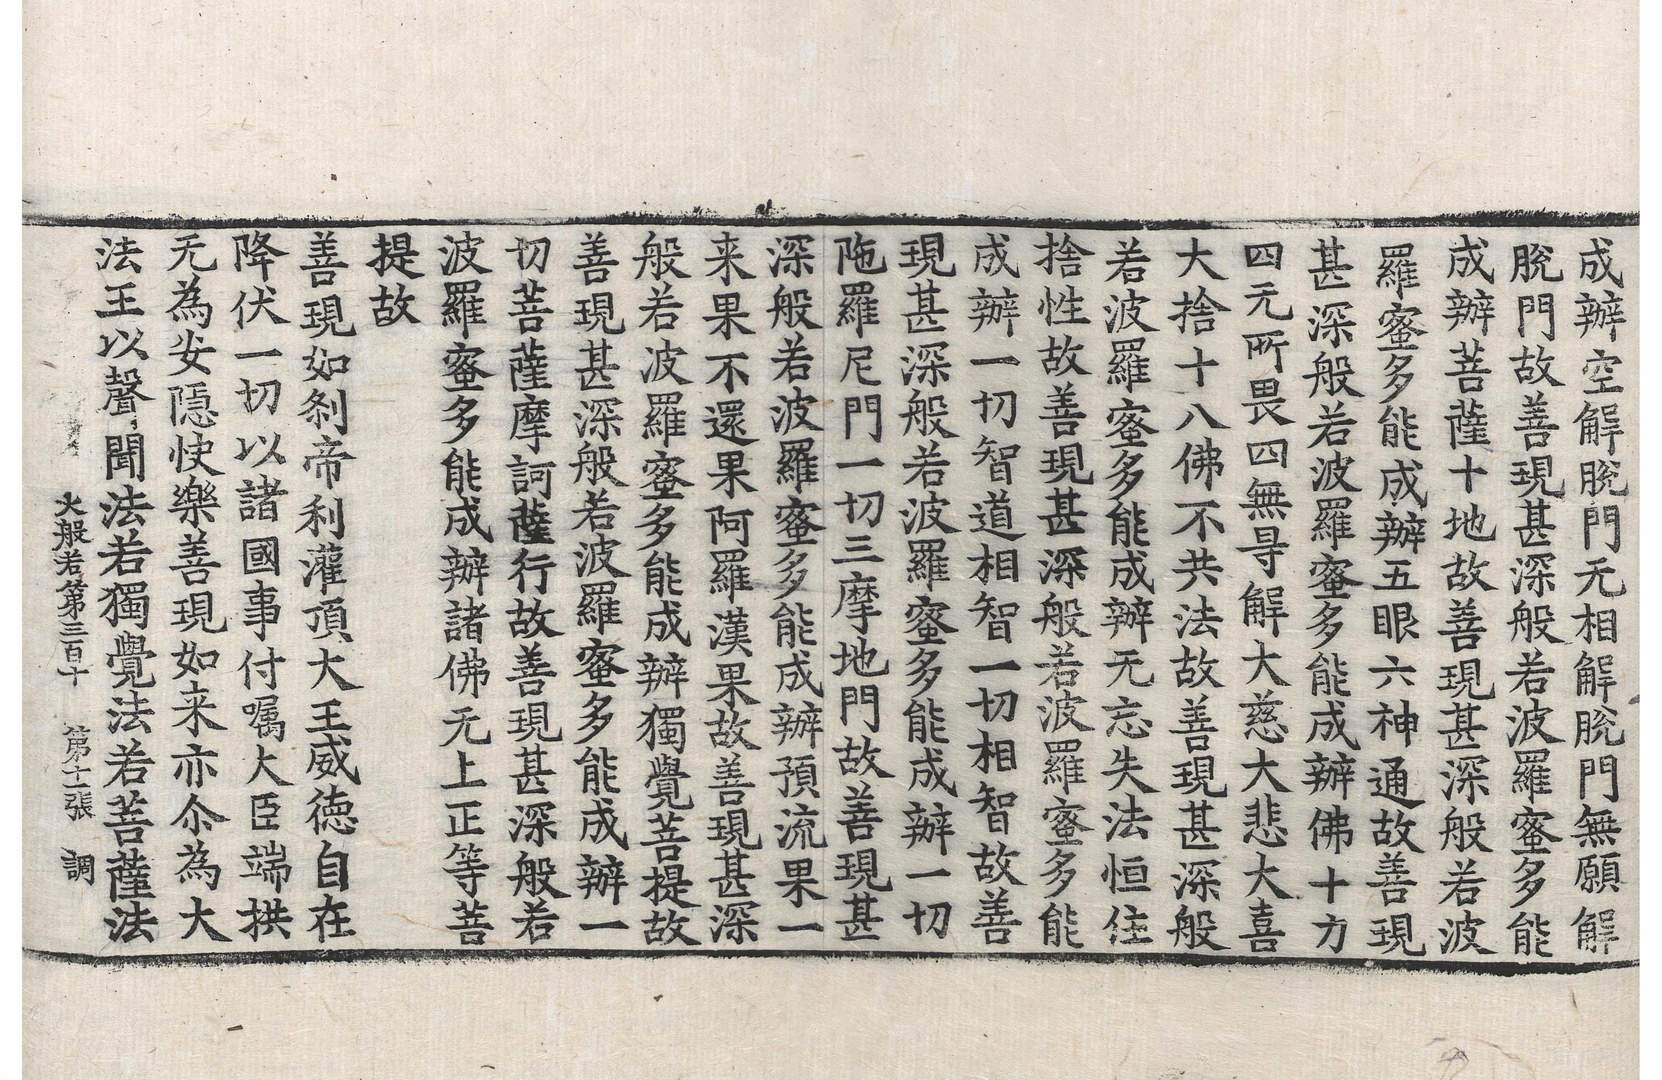 成辦空解脫門无相解脫門無願解
脫門故善現甚深般若波羅蜜多能
成辦菩薩十地故善現甚深般若波
羅蜜多能成辦五眼六神通故善現
甚深般若波羅蜜多能成辦佛十力
四无所畏四無㝵解大慈大悲大喜
大捨十八佛不共法故善現甚深般
若波羅蜜多能成辦无忘失法恒住
捨性故善現甚深般若波羅蜜多能
成辦一切智道相智一切相智故善
現甚深般若波羅蜜多能成辦一切
陁羅尼門一切三摩地門故善現甚
深般若波羅蜜多能成辦預流果一
来果不還果阿羅漢果故善現甚深
般若波羅蜜多能成辦獨覺菩提故
善現甚深般若波羅蜜多能成辦一
切菩薩摩訶薩行故善現甚深般若
波羅蜜多能成辦諸佛无上正等菩
提故
善現如刹帝利灌頂大王威德自在
降伏一切以諸國事付囑大臣端拱
无為安隱快樂善現如来亦尒為大
法王以聲聞法若獨覺法若菩薩法
大般若第三百十 第十一張 調